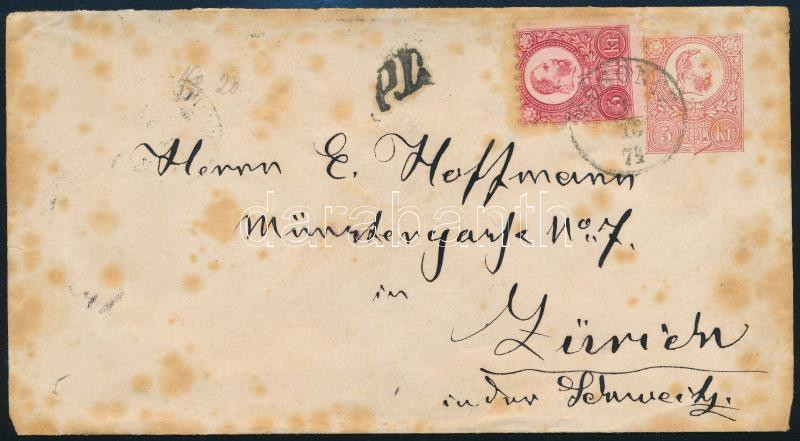 5 Kr
5 Kr
P.D.
20
15
74
Herrn E. Hoffmann
Münstergasse No. 7.
in
Zürich
in der Schweitz.
darabanth